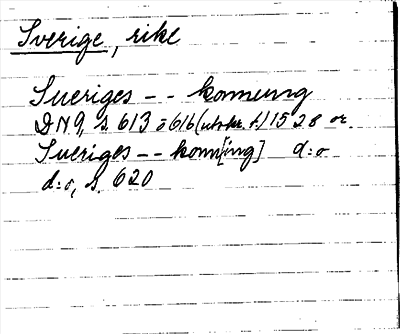 Sverige, rike
Sueriges -- konnung
DN 9, s. 613 o 616 (utskr. f.) 1528 or.
Sueriges -- konn[ing] d:o
d:o, s. 620